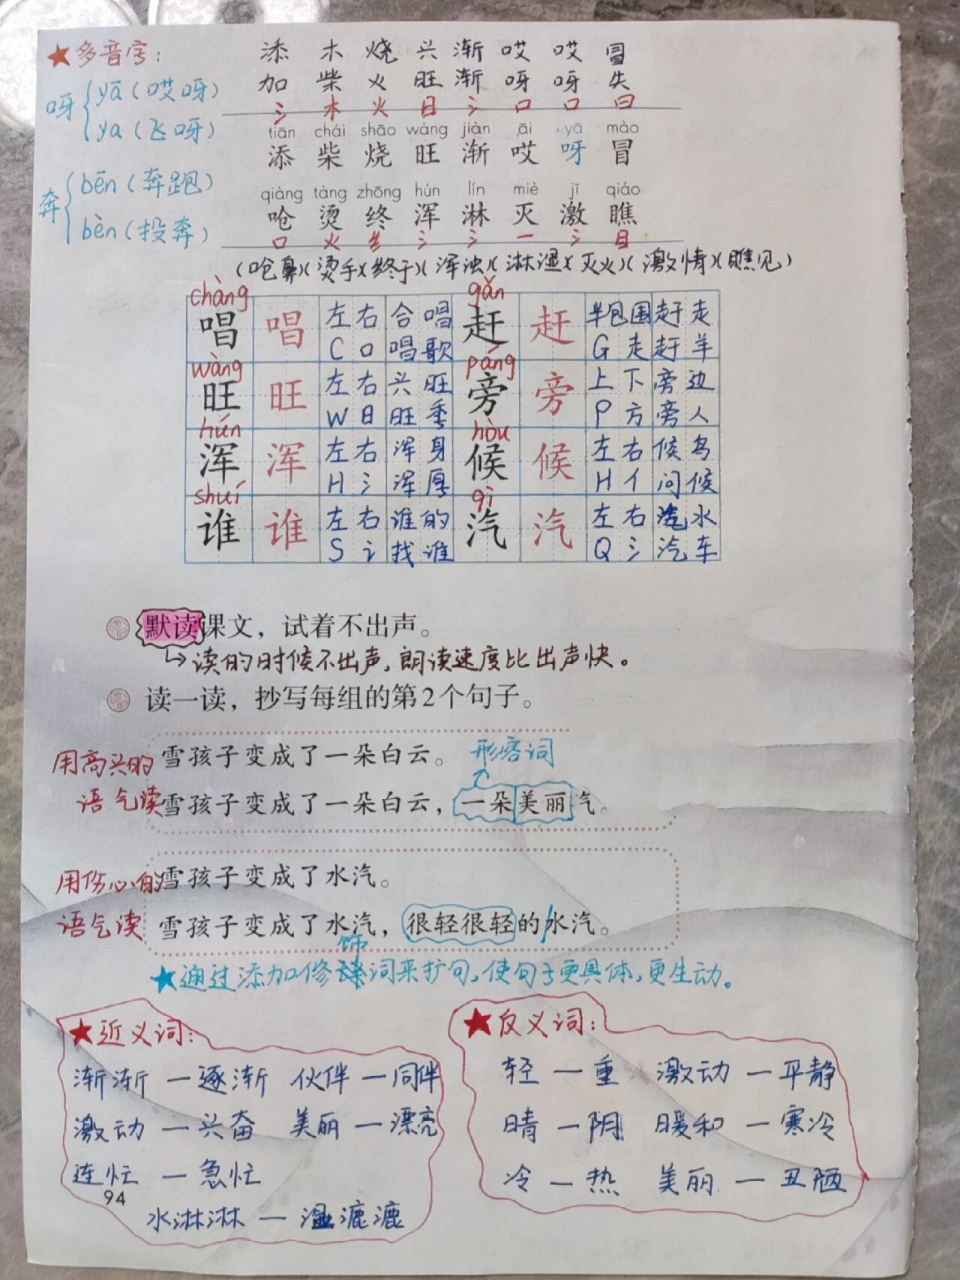 ★多音字：
呀 yā（哎呀）
ya（飞呀）
奔 bēn（奔跑）
bèn（投奔）
添 木 烧 兴 渐 哎 哎 冒
加 柴 火 旺 渐 呀 呀 失
氵 木 火 日 氵 口 口 曰
tiān chái shāo wàng jiàn āi yā mào
添 柴 烧 旺 渐 哎 呀 冒
qiàng tàng zhōng hún lín miè jī qiáo
呛 烫 终 浑 淋 灭 激 瞧
口 火 纟 氵 氵 一 氵 目
（呛鼻）（烫手）（终于）（浑浊）（淋湿）（灭火）（激情）（瞧见）
chàng gǎn
唱 唱 左右 合唱 赶 赶 半包围 赶走
C 口 唱歌 G 走 赶羊
wàng páng
旺 旺 左右 兴旺 旁 旁 上下 旁边
W 日 旺季 P 方 旁人
hún hòu
浑 浑 左右 浑身 候 候 左右 候鸟
H 氵 浑厚 H 亻 问候
shuí qì
谁 谁 左右 谁的 汽 汽 左右 汽水
S 讠 找谁 Q 氵 汽车
默读课文，试着不出声。
读的时候不出声，朗读速度比出声快。
读一读，抄写每组的第2个句子。
用高兴的
语气读
雪孩子变成了一朵白云。 形容词
雪孩子变成了一朵白云，一朵美丽汽。
用伤心的
语气读
雪孩子变成了水汽。
雪孩子变成了水汽，很轻很轻的水汽。
★通过添加修饰词来扩句，使句子更具体，更生动。
★近义词：
渐渐—逐渐 伙伴—同伴
激动—兴奋 美丽—漂亮
连忙—急忙
水淋淋—湿漉漉
★反义词：
轻—重 激动—平静
晴—阴 暖和—寒冷
冷—热 美丽—丑陋
94